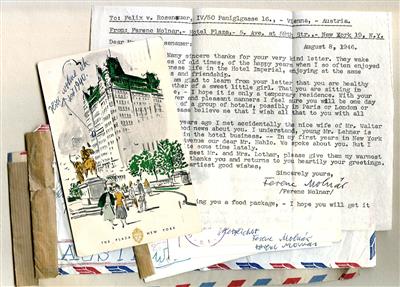 To: Felix v. Rosenauer, IV/50 Paniglgasse 16., - Vienna, - Austria.
From: Ferenc Molnar.- Hotel Plaza.- 5. Ave, at 59th Str..- New York 19, N.Y.
August 8, 1946.
Dear
many sincere thanks for your very kind letter. They wake
es of old times, of the happy years when I so often enjoyed
ese life in the Hotel Imperial, enjoying at the same
and friendship.
am glad to learn from your letter that you are healthy
ther of a sweet little girl. That you are sitting in
, - I hope it is only a temporary residence. With your
or pleasant manners I feel sure you will be one day
of a group of hotels, possibly in Paris or London or
ease believe me that I wish all that to you with all
years ago I met accidentally the nice wife of Mr. Walter
od news about you. I understand, young Mr. Lehner is
in the hotel business. -- In my first years in New York
avenue our dear Mr. Nohle. We spoke about you. But I
to some time lately.
meet Mr. and Mrs. Lothar, please give them my warmest
thanks you and returns to you heartily your greetings.
artiest good wishes,
Sincerely yours,
Ferenc Molnár
/Ferenc Molnar/
ing you a food package, - I hope you will get it
THE PLAZA NEW YORK
Ferenc Molnár
Ferenc Molnár